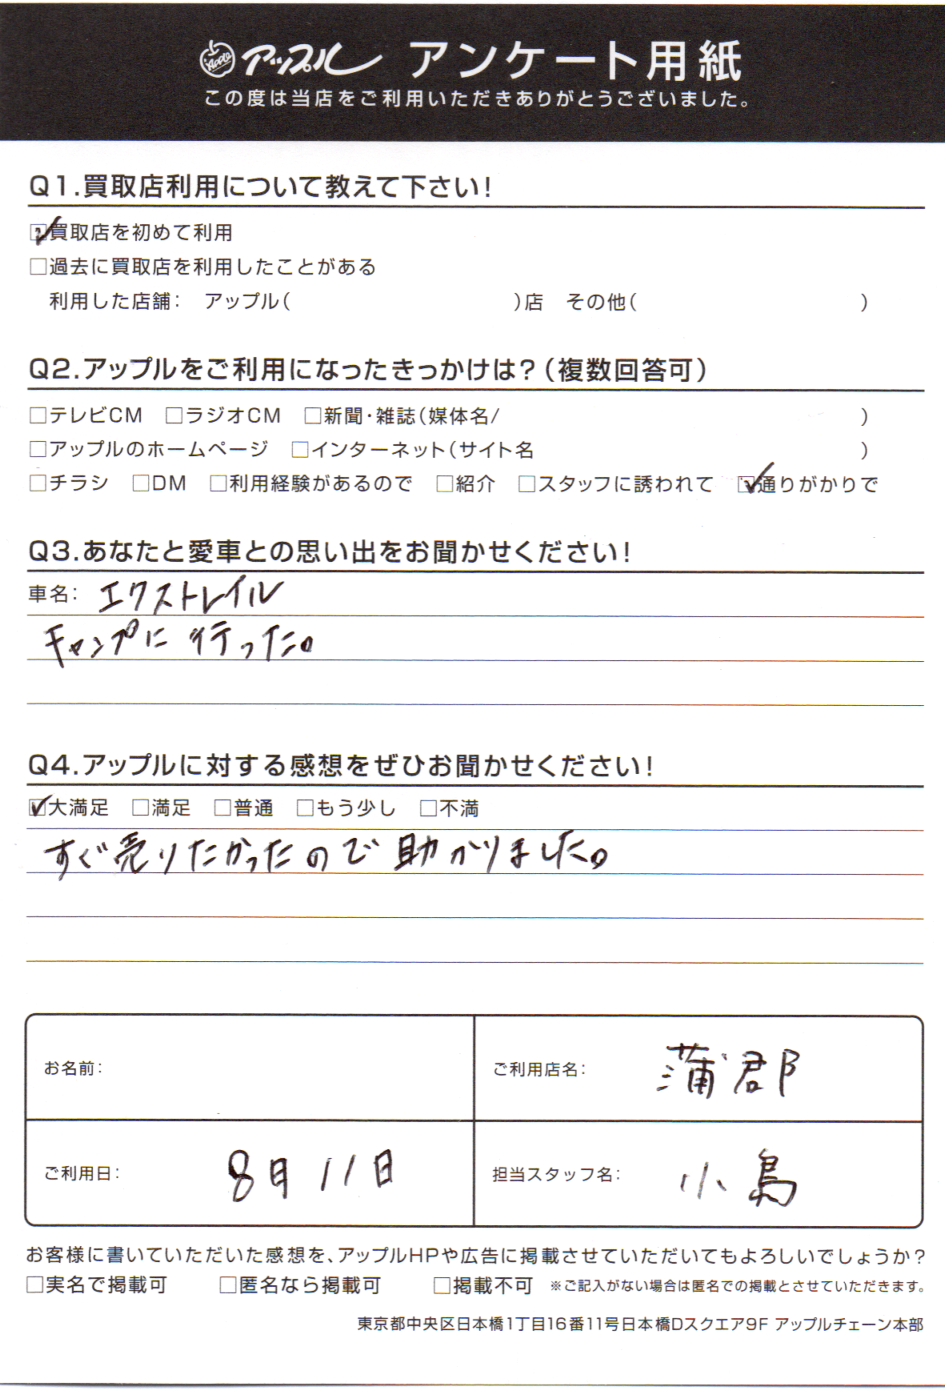 アップル アンケート用紙
この度は当店をご利用いただきありがとうございました。
Q1.買取店利用について教えて下さい!
☑買取店を初めて利用
□過去に買取店を利用したことがある
利用した店舗: アップル( )店 その他( )
Q2.アップルをご利用になったきっかけは?(複数回答可)
□テレビCM □ラジオCM □新聞・雑誌(媒体名/ )
□アップルのホームページ □インターネット(サイト名 )
□チラシ □DM □利用経験があるので □紹介 □スタッフに誘われて ☑通りがかりで
Q3.あなたと愛車との思い出をお聞かせください!
車名: エクストレイル
キャンプに行った。
Q4.アップルに対する感想をぜひお聞かせください!
☑大満足 □満足 □普通 □もう少し □不満
すぐ売りたかったので助かりました。
お名前:
ご利用店名: 蒲郡
ご利用日: 8月11日
担当スタッフ名: 小島
お客様に書いていただいた感想を、アップルHPや広告に掲載させていただいてもよろしいでしょうか?
□実名で掲載可 □匿名なら掲載可 □掲載不可 ※ご記入がない場合は匿名での掲載とさせていただきます。
東京都中央区日本橋1丁目16番11号日本橋Dスクエア9F アップルチェーン本部